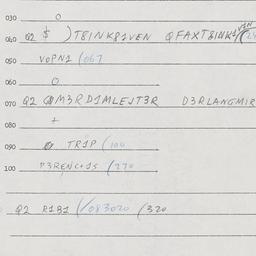 030 O
040 Q2 $ )T8INK81VEN QFAXT8INK1/
050 VOPN1 (067
060 O
070 Q2 M3RD1MLEJT3R D3RLANGMIR
080 +
090 TR1P (100
100 P3RENC+1S (270
Q2 R1B1 (/083020 (320